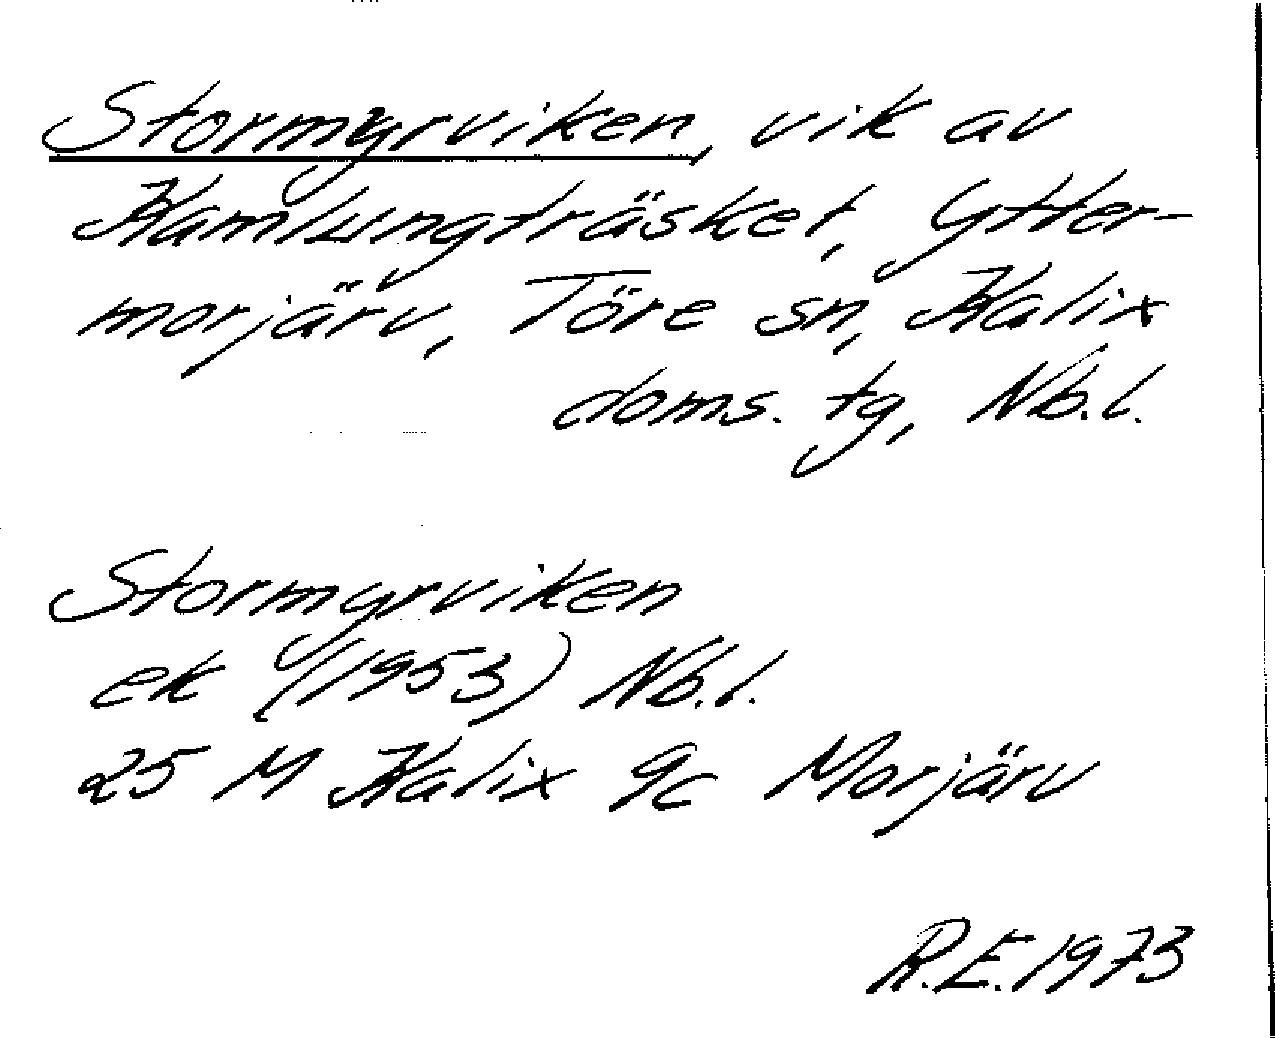 Stormyrviken, vik av
Kamlungträsket, Ytter-
morjärv, Töre sn, Kalix
doms. tg, Nb.l.
Stormyrviken
ek (1953) Nb.l.
25 M Kalix 9c Morjärv
R.E. 1973